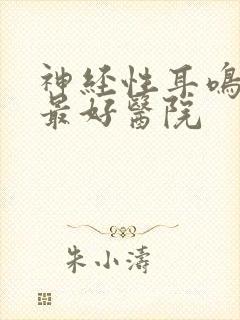 神経性耳鳴
最好醫院
朱小濤